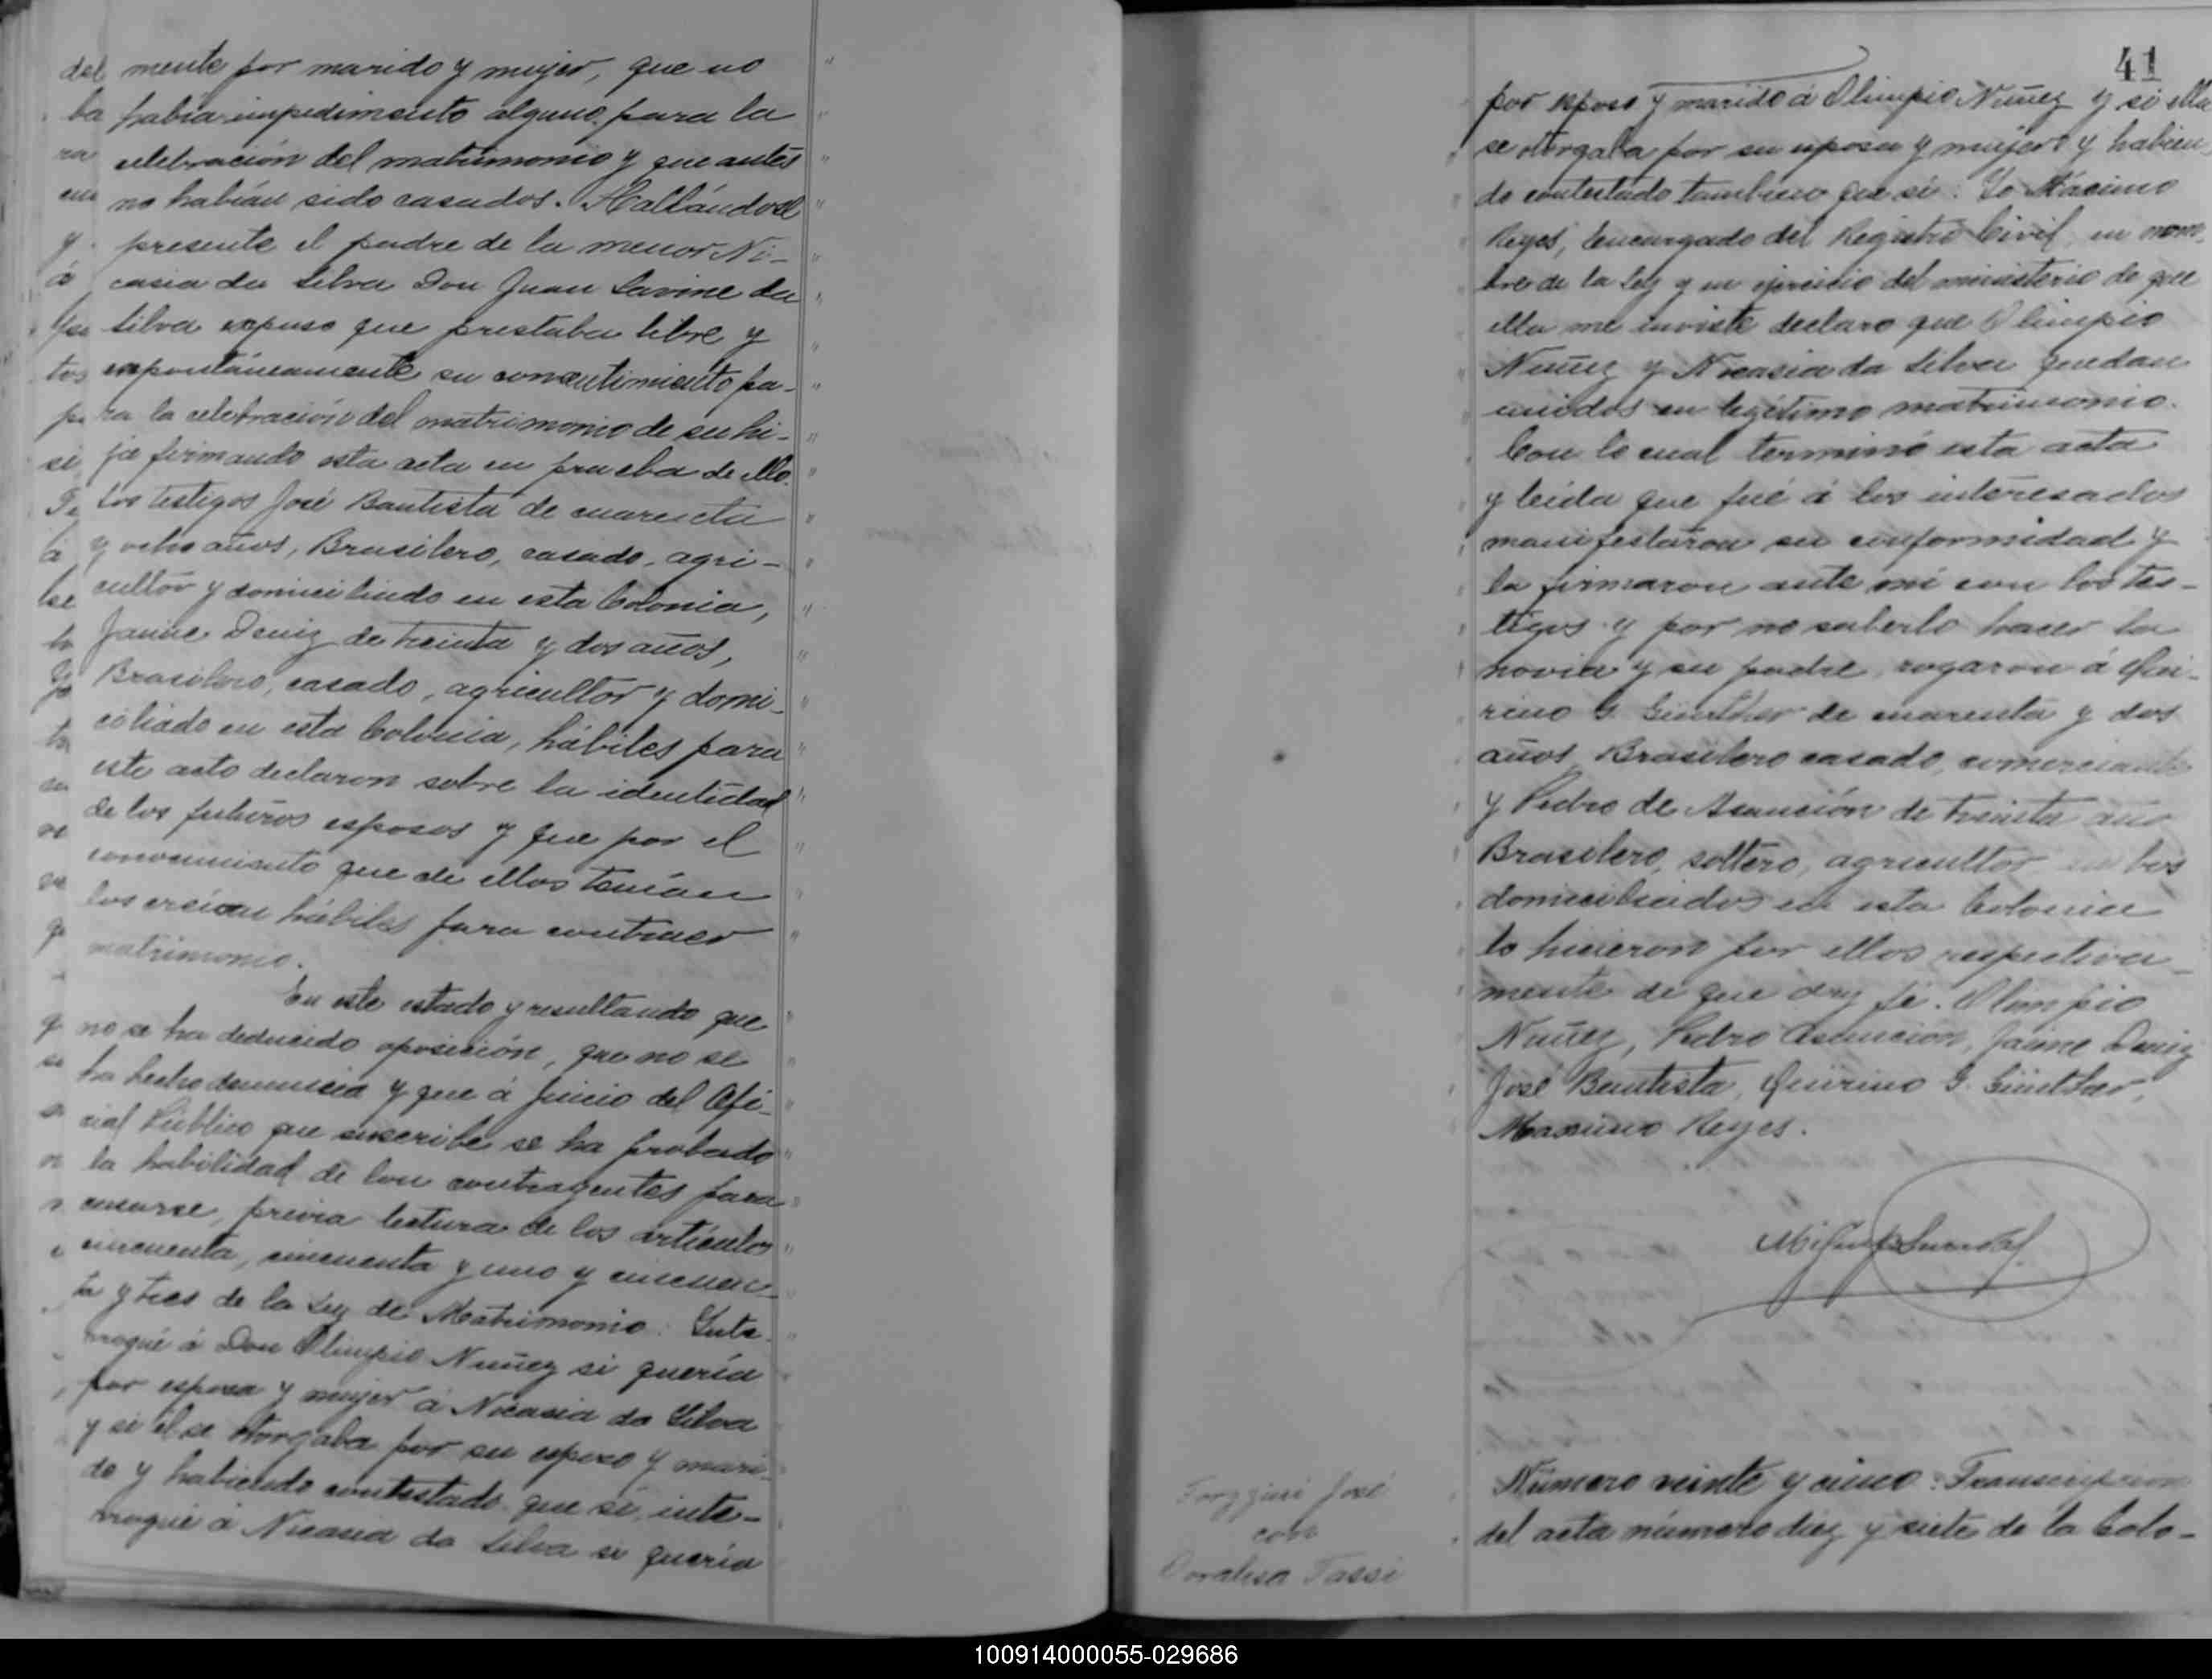 mente por marido y mujer, que no
había impedimento alguno para la
celebración del matrimonio y que antes
no habían sido casados. Hallándose
presente el padre de la menor Ni-
casia da Silva Don Juan Lavine da
Silva expuso que prestaba libre y
expontáneamente su consentimiento pa-
ra la celebración del matrimonio de su hi-
ja firmando esta acta en prueba de ello.
Los testigos José Bautista de cuarenta
y ocho años, Brasilero, casado, agri-
cultor y domiciliado en esta Colonia,
Jaime Deniz de treinta y dos años,
Brasilero, casado, agricultor y domi-
ciliado en esta Colonia, hábiles para
este acto declaron sobre la identidad
de los futuros esposos y que por el
conocimiento que de ellos tenían
los creían hábiles para contraer
matrimonio.
En este estado y resultando que
no se ha deducido oposición, que no se
ha hecho denuncia y que á juicio del Ofi-
cial Público que suscribe se ha probado
la habilidad de los contrayentes para
casarse, previa lectura de los artículos
cincuenta, cincuenta y uno y cincuen-
ta y tres de la Ley de Matrimonio: Inte-
rrogué á Don Olimpio Nuñez si quería
por esposa y mujer á Nicasia da Silva
y si él se otorgaba por su esposo y mari-
do y habiendo contestado que sí, inte-
rrogué á Nicasia da Silva si quería
41
por esposo y marido á Olimpio Nuñez y si ella
se otorgaba por su esposa y mujer y habien
do contestado tambien que sí: Yo Máximo
Reyes, Encargado del Registro Civil, en nom-
bre de la Ley y en ejercicio del ministerio de que
ella me inviste declaro que Olimpio
Nuñez y Nicasia da Silva quedan
unidos en legítimo matrimonio.
Con lo cual terminó esta acta
y leída que fué á los interesados
manifestaron su conformidad y
la firmaron ante mí con los tes-
tigos y por no saberlo hacer la
novia y su padre, rogaron á Qui-
rino G. Günther de cuarenta y dos
años Brasilero casado, comerciante
y Pedro de Asunción de treinta años
Brasilero, soltero, agricultor, ambos
domiciliados en esta Colonia
lo hicieron por ellos respectiva-
mente de que doy fé. Olimpio
Nuñez, Pedro Asuncion, Jaime Deniz
José Bautista, Quirino G. Günther,
Maximo Reyes.
Número veinte y cinco: Transcripcion
del acta número diez y siete de la Colo-
José
con
Doralisa Tassi
100914000055-029686